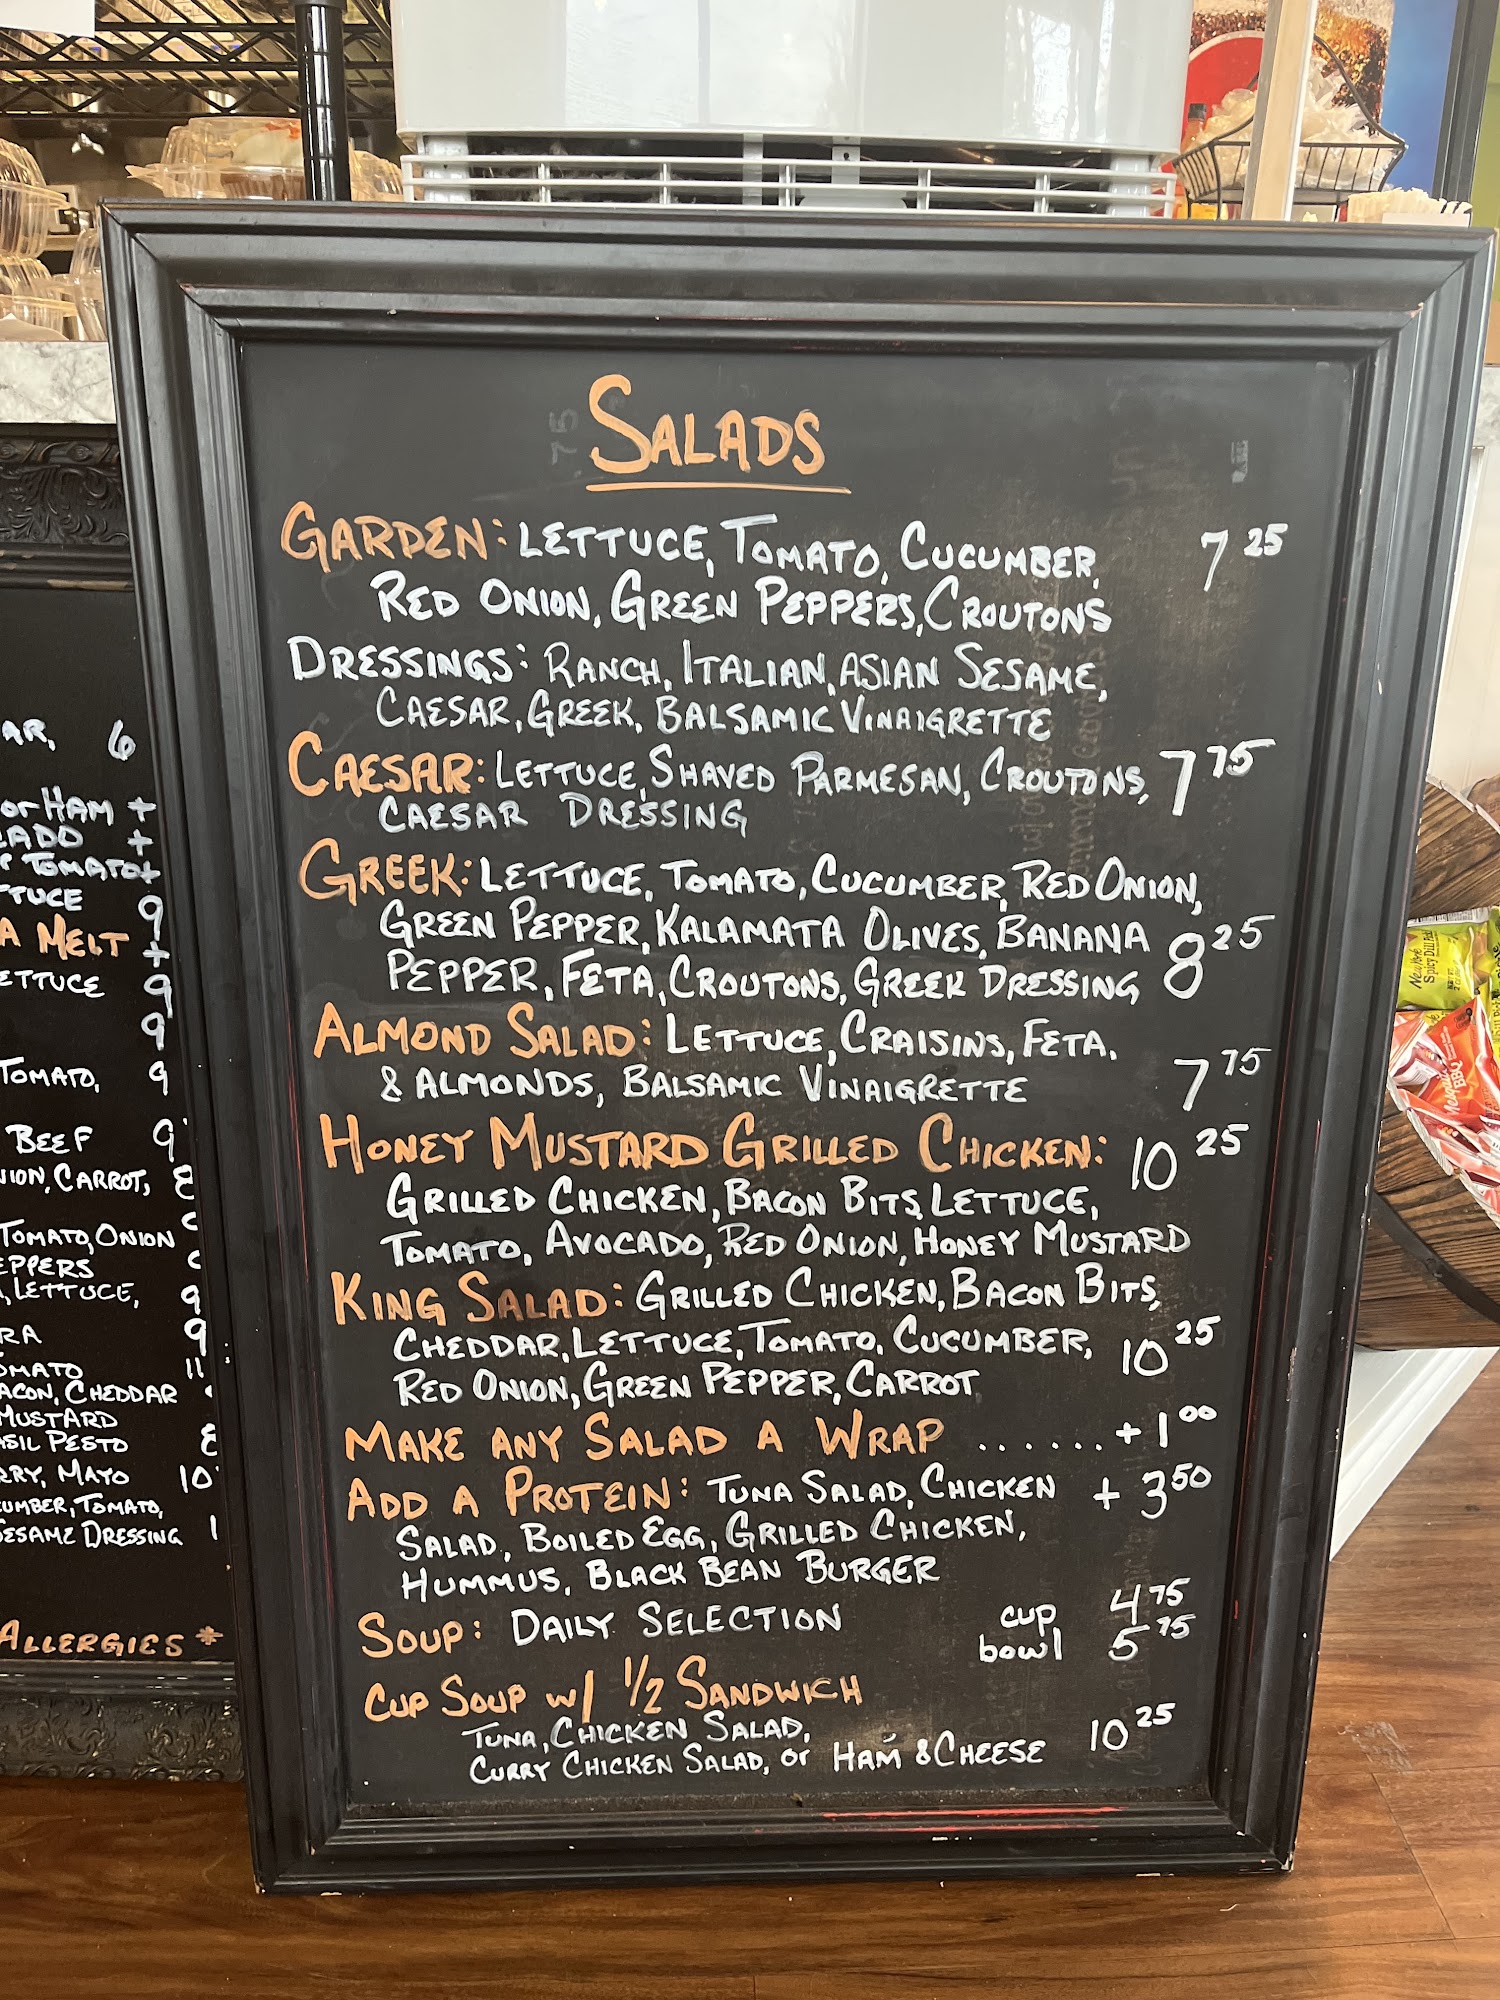 SALADS
GARDEN: LETTUCE, TOMATO, CUCUMBER, 7 25
RED ONION, GREEN PEPPERS, CROUTONS
DRESSINGS: RANCH, ITALIAN, ASIAN SESAME,
CAESAR, GREEK, BALSAMIC VINAIGRETTE
CAESAR: LETTUCE, SHAVED PARMESAN, CROUTONS, 7 75
CAESAR DRESSING
GREEK: LETTUCE, TOMATO, CUCUMBER, RED ONION,
GREEN PEPPER, KALAMATA OLIVES, BANANA 8 25
PEPPER, FETA, CROUTONS, GREEK DRESSING
ALMOND SALAD: LETTUCE, CRAISINS, FETA,
& ALMONDS, BALSAMIC VINAIGRETTE 7 75
HONEY MUSTARD GRILLED CHICKEN: 10 25
GRILLED CHICKEN, BACON BITS, LETTUCE,
TOMATO, AVOCADO, RED ONION, HONEY MUSTARD
KING SALAD: GRILLED CHICKEN, BACON BITS,
CHEDDAR, LETTUCE, TOMATO, CUCUMBER, 10 25
RED ONION, GREEN PEPPER, CARROT
MAKE ANY SALAD A WRAP ...... + 1 00
ADD A PROTEIN: TUNA SALAD, CHICKEN + 3 50
SALAD, BOILED EGG, GRILLED CHICKEN,
HUMMUS, BLACK BEAN BURGER
SOUP: DAILY SELECTION cup 4 75
bowl 5 75
CUP SOUP w/ 1/2 SANDWICH
TUNA, CHICKEN SALAD,
CURRY CHICKEN SALAD, or HAM & CHEESE 10 25
6
or HAM +
+
TOMATO +
9
MELT +
LETTUCE 9
9
TOMATO, 9
BEEF 9
CARROT,
TOMATO, ONION
LETTUCE, 9
9
11
BACON, CHEDDAR
MUSTARD
PESTO
MAYO 10
TOMATO,
SESAME DRESSING
ALLERGIES *
New York
Spicy Dill Pickle
Mesquite
BBQ